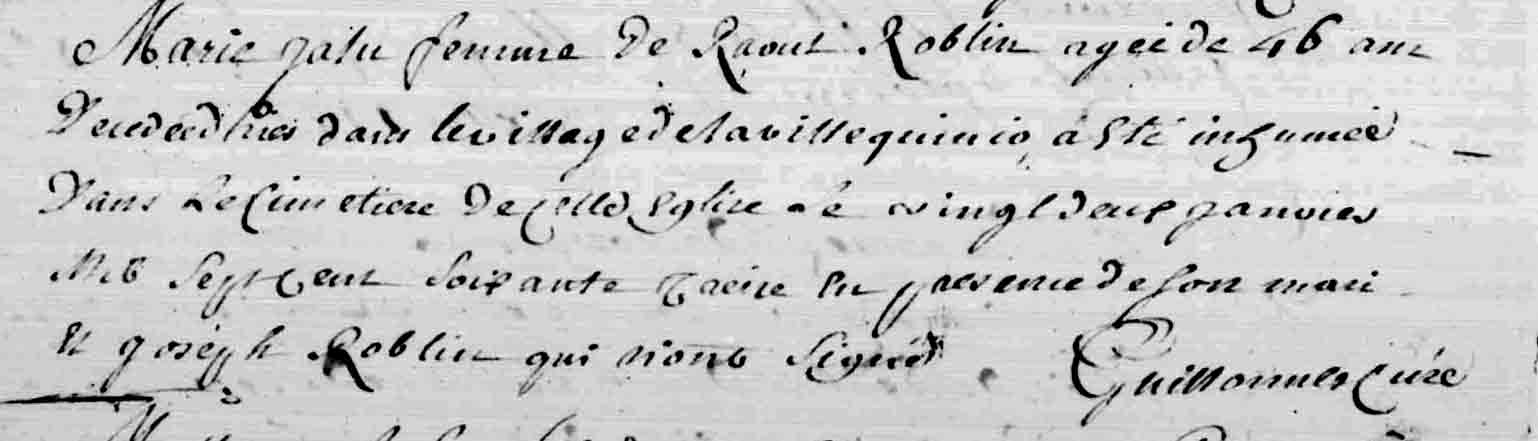 Marie jalu femme De Raoul Roblin agéé de 46 ans
Decedeé hier dans le village de la ville quinio, a Eté inhumeé
Dans le Cimetiere De cette Eglise Le vingt deux janvier
Mil Sept Cent Soixante Treize En presence de Son mari
Et joseph Roblin qui n'ont Signés
Curé